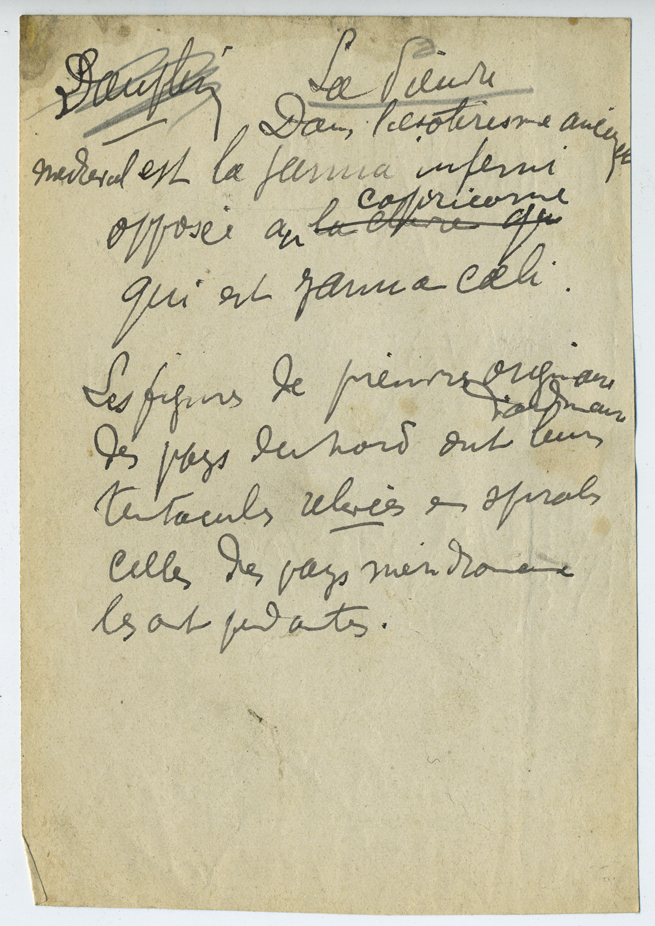 Dauphin La Pieuvre
Dans l'esotérisme ancien et
médiéval est la janua inferni
capricorne
opposée au la qui
qui est janua cœli.
Les figures de pieuvres originaires
des pays du nord ont leurs
tentacules relevées en spirales
celles des pays méridionaux
les ont pendantes.